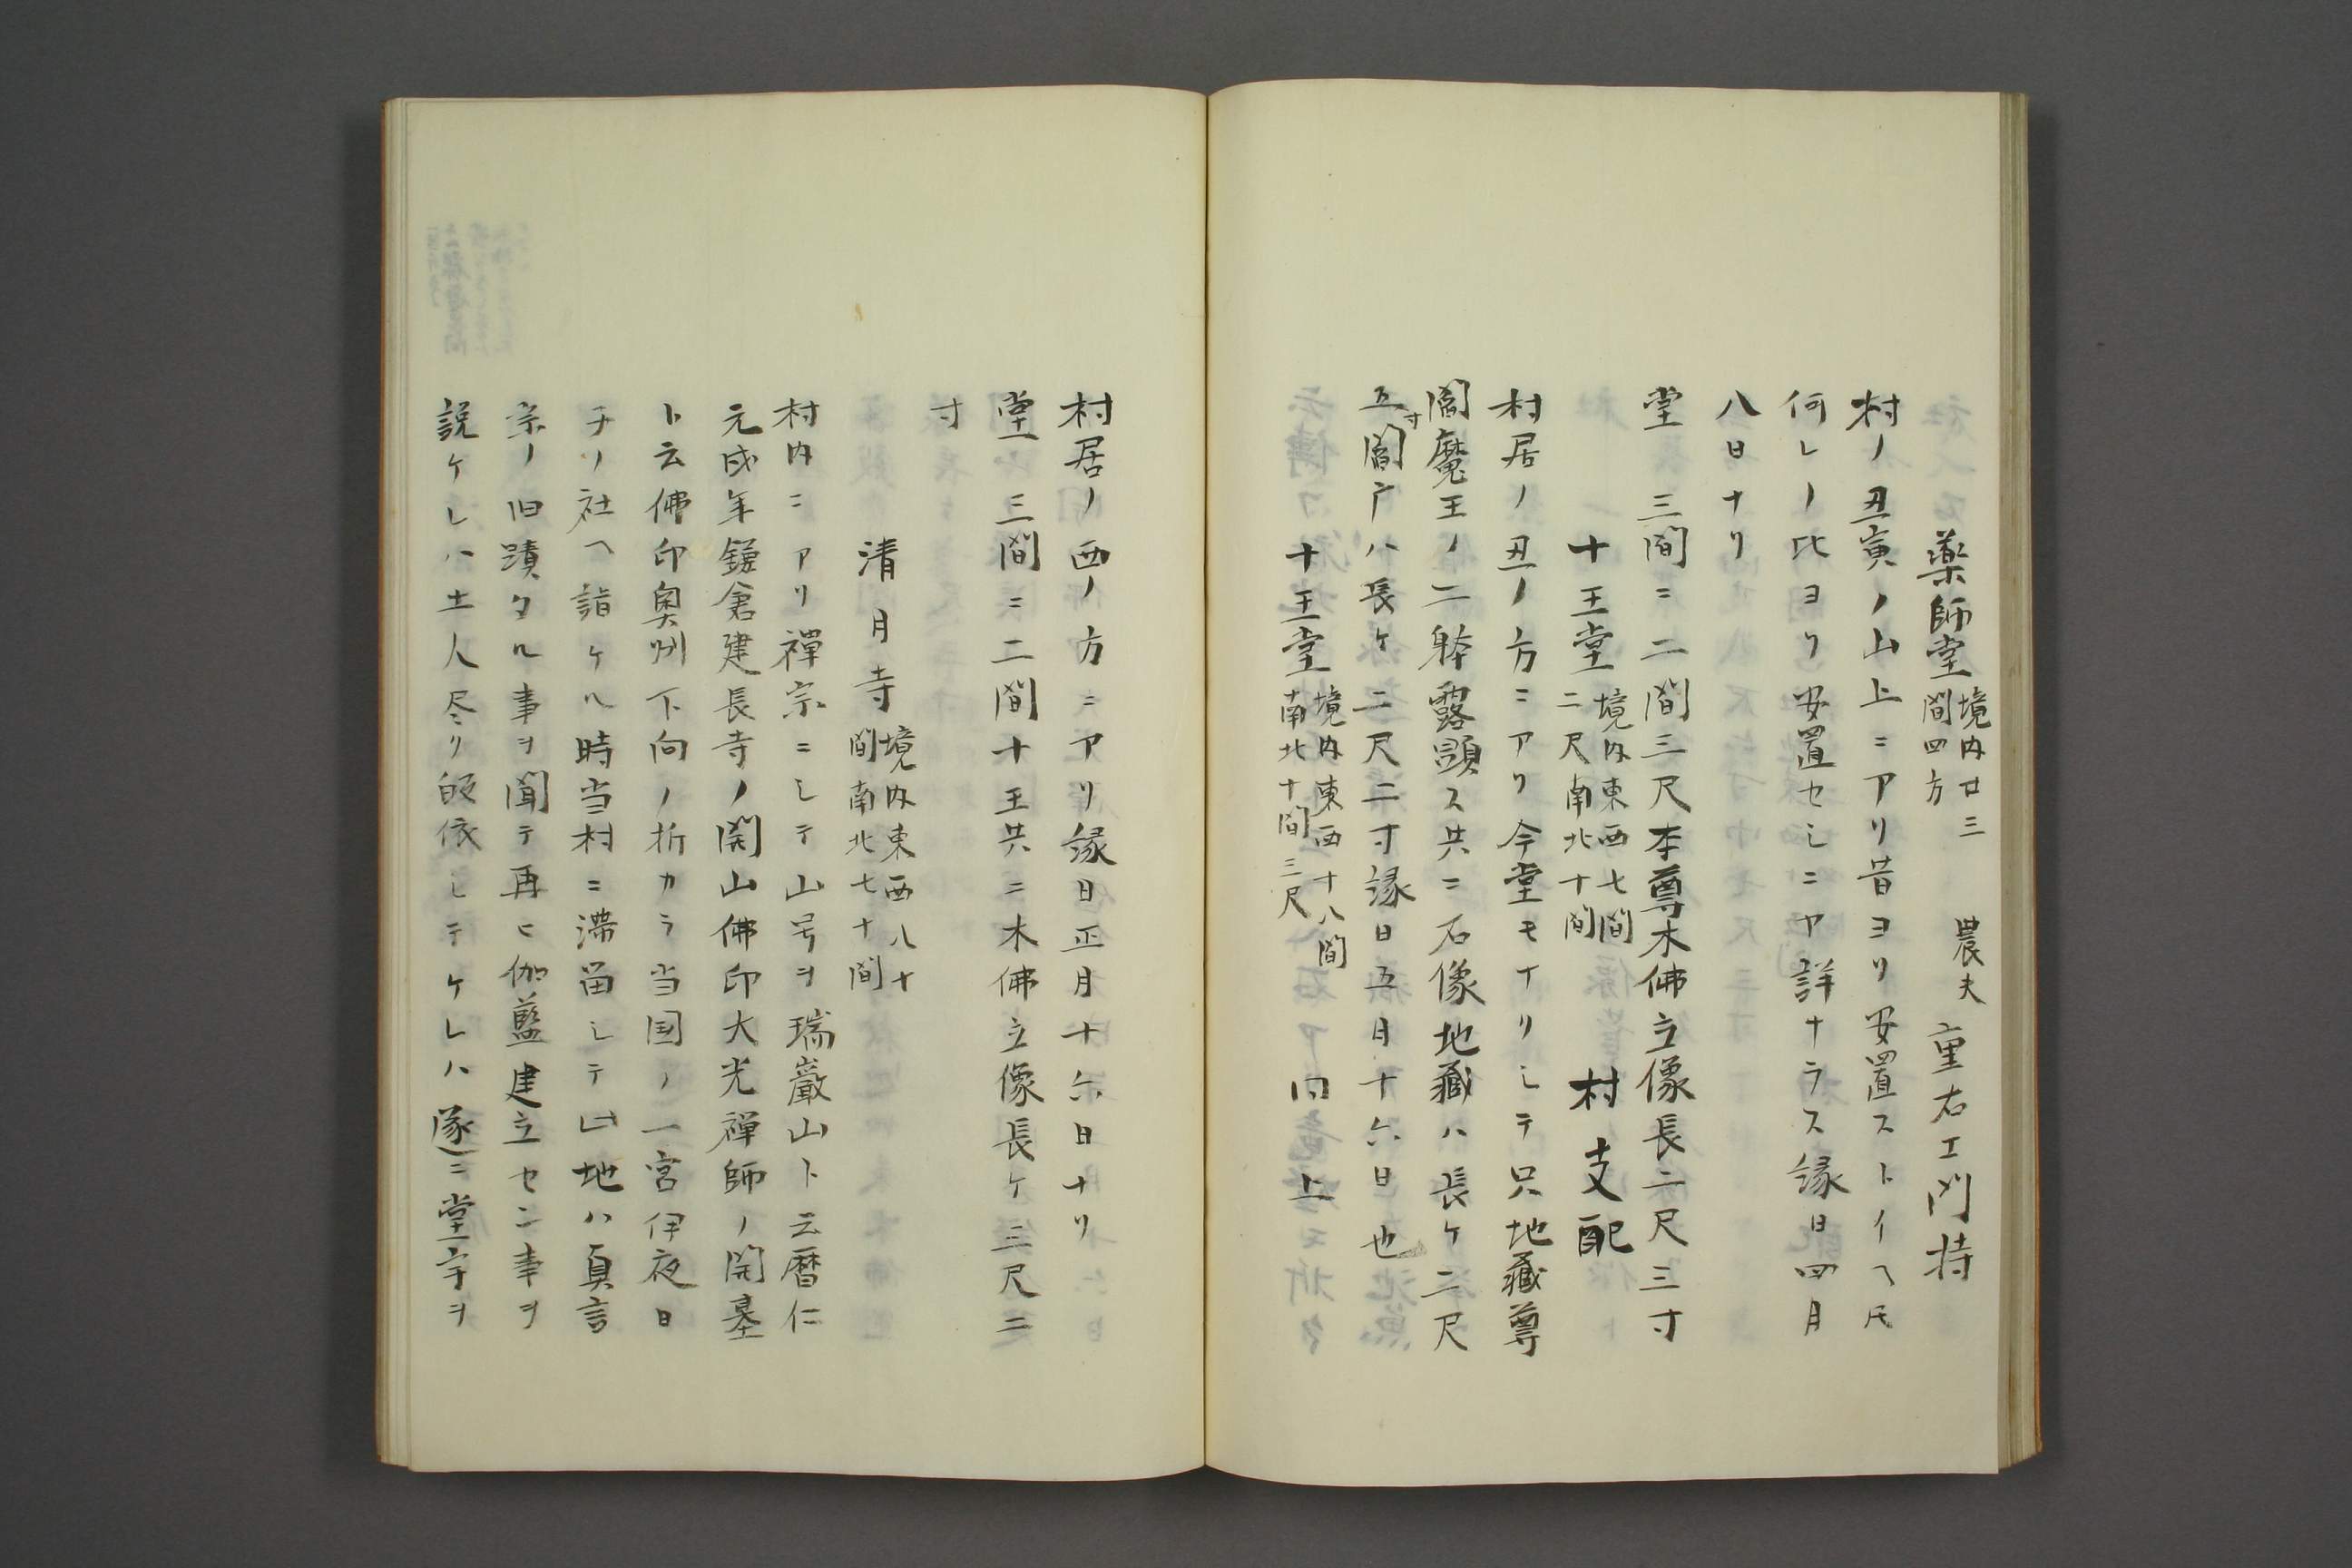 薬師堂 境内廿三間四方 農夫 重右エ門持
村ノ丑寅ノ山上ニアリ昔ヨリ安置ストイヘ𪜈
何レノ比ヨリ安置セシニヤ詳ナラス縁日四月
八日ナリ
堂 三間ニ二間三尺本尊木佛立像長二尺三寸
十王堂 境内東西七間二尺南北十間 村支配
村居ノ丑ノ方ニアリ今堂モナリシテ只地蔵尊
閻魔王ノ二躰露顕ス共ニ石像地蔵ハ長ケ二尺
五寸閻广ハ長ケ二尺二寸縁日五月十六日也
十王堂 境内東西十八間南北十間三尺 同上
村居ノ西ノ方ニアリ縁日正月十六日ナリ
堂 三間ニ二間十王共ニ木佛立像長ケ三尺二
寸
清月寺 境内東西八十間南北七十間
村内ニアリ禅宗ニシテ山号ヲ瑞巌山ト云暦仁
元戌年鎌倉建長寺ノ開山佛印大光禅師ノ開基
ト云佛印奥州下向ノ折カラ当国ノ一宮伊夜日
子ノ社ヘ詣ケル時当村ニ滞留シテ此地ハ真言
宗ノ旧蹟タル事ヲ聞テ再ヒ伽藍建立セン事ヲ
説ケレハ土人尽リ皈依シテケレハ遂ニ堂宇ヲ